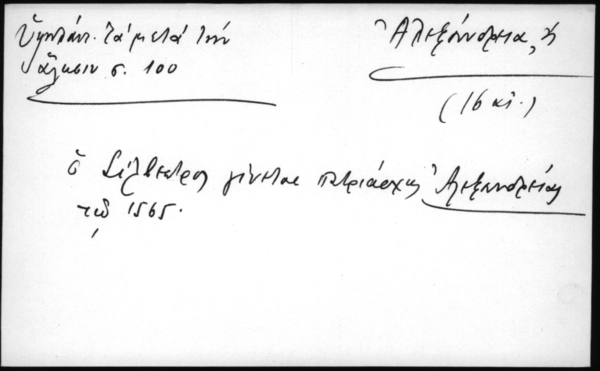 Ὑψηλάντ. Τὰ μετὰ τὴν
ἅλωσιν σ. 100
Ἀλεξάνδρεια, ἡ
(16 αἰ.)
ὁ Σίλβεστρος γίνεται πατριάρχης Ἀλεξανδρείας
τῷ 1565.